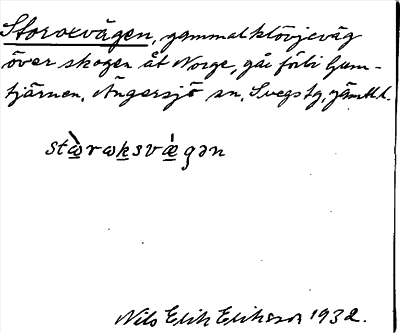 Storoxvägen, gammal klövjeväg
över skogen åt Norge, går förbi Ljum-
tjärnen. Ängersjö sn, Svegs tg, Jämtl.
Nils Erik Eriksson 1932.